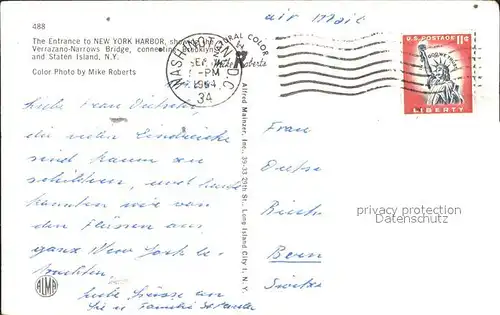 488
The Entrance to NEW YORK HARBOR, showing the
Verrazano-Narrows Bridge, connecting Brooklyn
and Staten Island, N.Y.
Color Photo by Mike Roberts
NATURAL COLOR
Mike Roberts
WASHINGTON, D.C.
SEP
PM
1964
34
air Mail
U.S. POSTAGE 11¢
LIBERTY
Alfred Mainzer, Inc., 39-33 29th St., Long Island City 1, N.Y.
Liebe Frau
die vielen Eindrücke
sind kaum zu
schildern, und heute
konnten wir von
den Flüssen aus
ganz New York be-
trachten.
Liebe Grüsse an
Sie u Familie
Frau
Bern
privacy protection
Datenschutz
ALMA